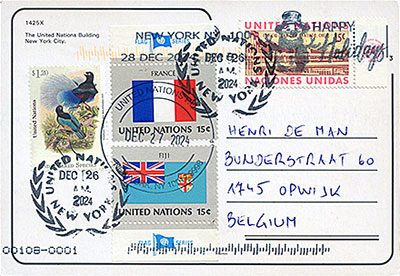 1425X
The United Nations Building
New York City.
NEW YORK NY 100
28 DEC 202
FLAG SERIES
FRANCE
UNITED NATIONS 15c
DEC 27 2024
FIJI
UNITED NATIONS 15c
FLAG SERIES
$1.20
United Nations
UNITED NATIONS
DEC 26
A.M.
2024
NEW YORK
UNITED NATIONS
DEC 26
A.M.
2024
NEW YORK
UNITED NATIONS
HAPPY
Holidays!
15c
NACIONES UNIDAS
HENRI DE MAN
BUNDERSTRAAT 60
1745 OPWIJK
BELGIUM
00108-0001